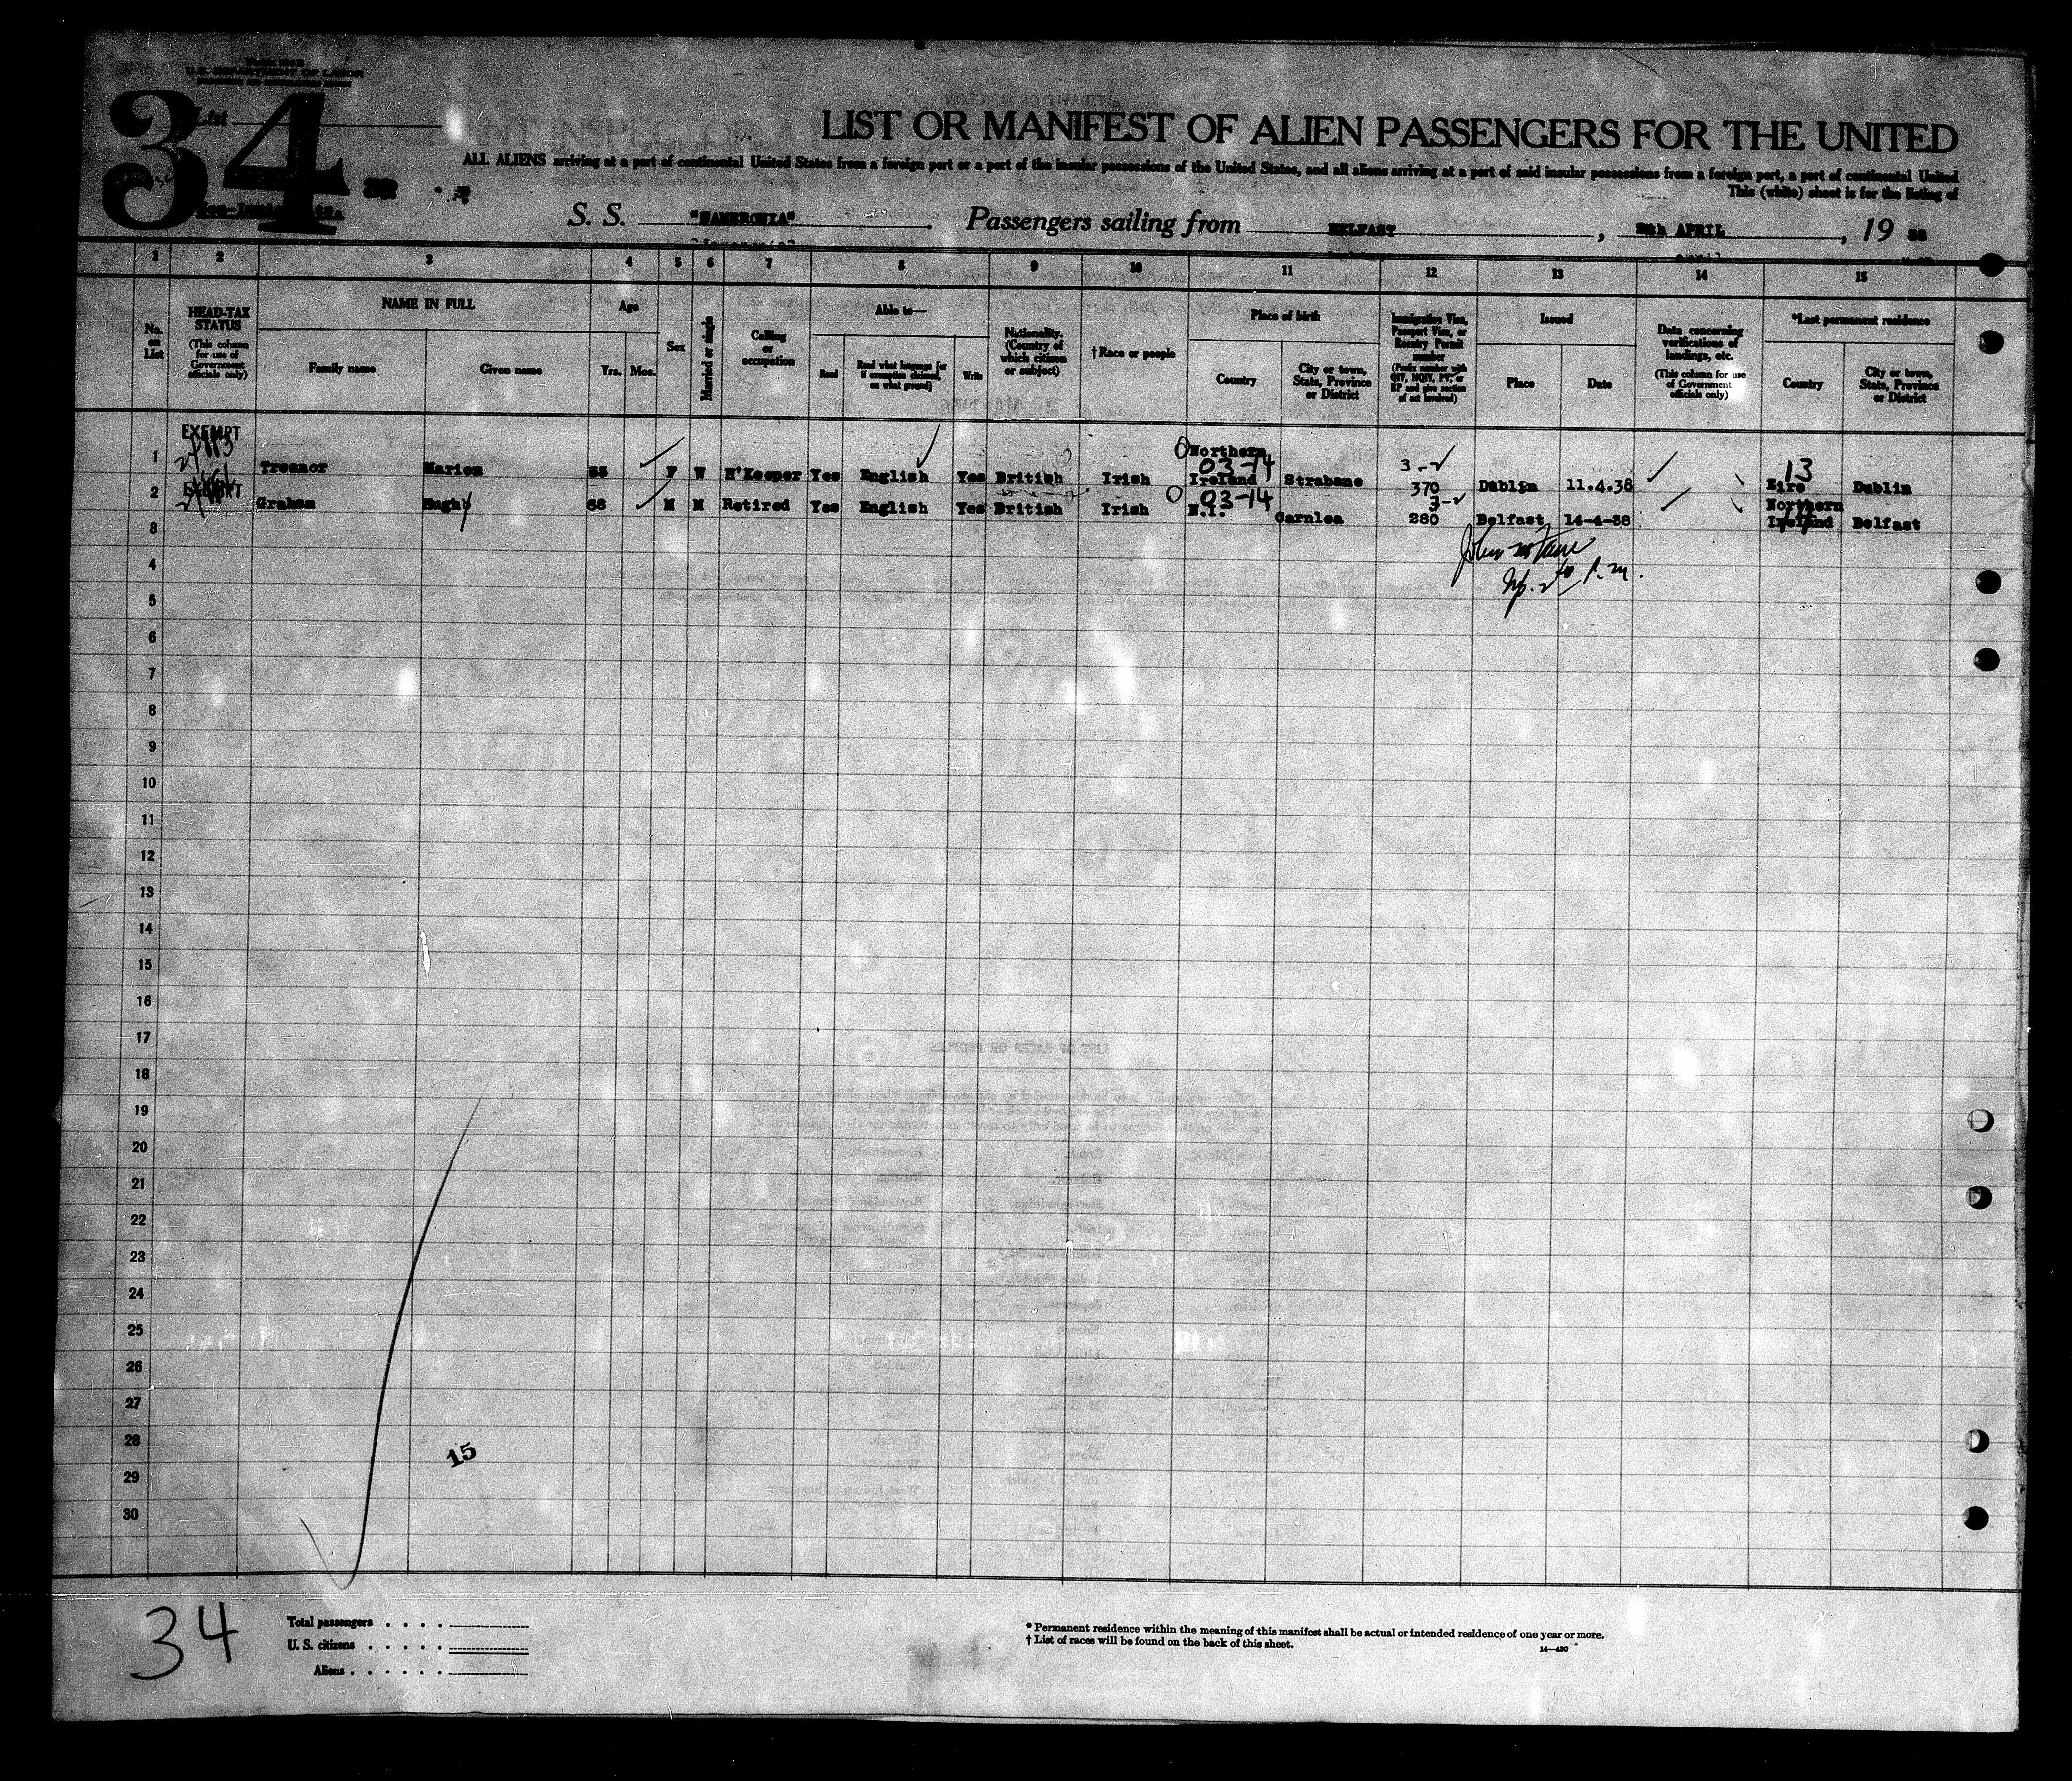 U.S. DEPARTMENT OF LABOR
34
List
LIST OR MANIFEST OF ALIEN PASSENGERS FOR THE UNITED
ALL ALIENS arriving at a port of continental United States from a foreign port or a port of the insular possessions of the United States, and all aliens arriving at a port of said insular possessions from a foreign port, a port of continental United
This (white) sheet is for the listing of
S. S. Passengers sailing from BELFAST, APRIL, 19
1 2 3 4 5 6 7 8 9 10 11 12 13 14 15
No. on List
HEAD-TAX STATUS (This column for use of Government officials only)
NAME IN FULL
Family name
Given name
Age
Yrs. Mos.
Sex
Married or single
Calling or occupation
Able to—
Read
Read what language [or if exemption claimed, on what ground]
Write
Nationality. (Country of which citizen or subject)
†Race or people
Place of birth
Country
City or town, State, Province or District
Immigration Visa, Passport Visa, or Reentry Permit number (Prefix number with QIV, NQIV, PV, or RP and give section of act involved)
Issued
Place
Date
Data concerning verifications of landings, etc. (This column for use of Government officials only)
*Last permanent residence
Country
City or town, State, Province or District
1 EXEMPT Treanor Marion F W H'Keeper Yes English Yes British Irish Northern Ireland 03-14 Strabane 3- 370 Dublin 11.4.38 13 Eire Dublin
2 EXEMPT Graham Hugh 68 M M Retired Yes English Yes British Irish N.I. 03-14 Carnlea 3- 280 Belfast 14-4-38 Northern Ireland Belfast
3
4
5
6
7
8
9
10
11
12
13
14
15
16
17
18
19
20
21
22
23
24
25
26
27
28
29
30
15
34
Total passengers . . . .
U. S. citizens . . . . .
Aliens . . . . . .
* Permanent residence within the meaning of this manifest shall be actual or intended residence of one year or more.
† List of races will be found on the back of this sheet.
14—430